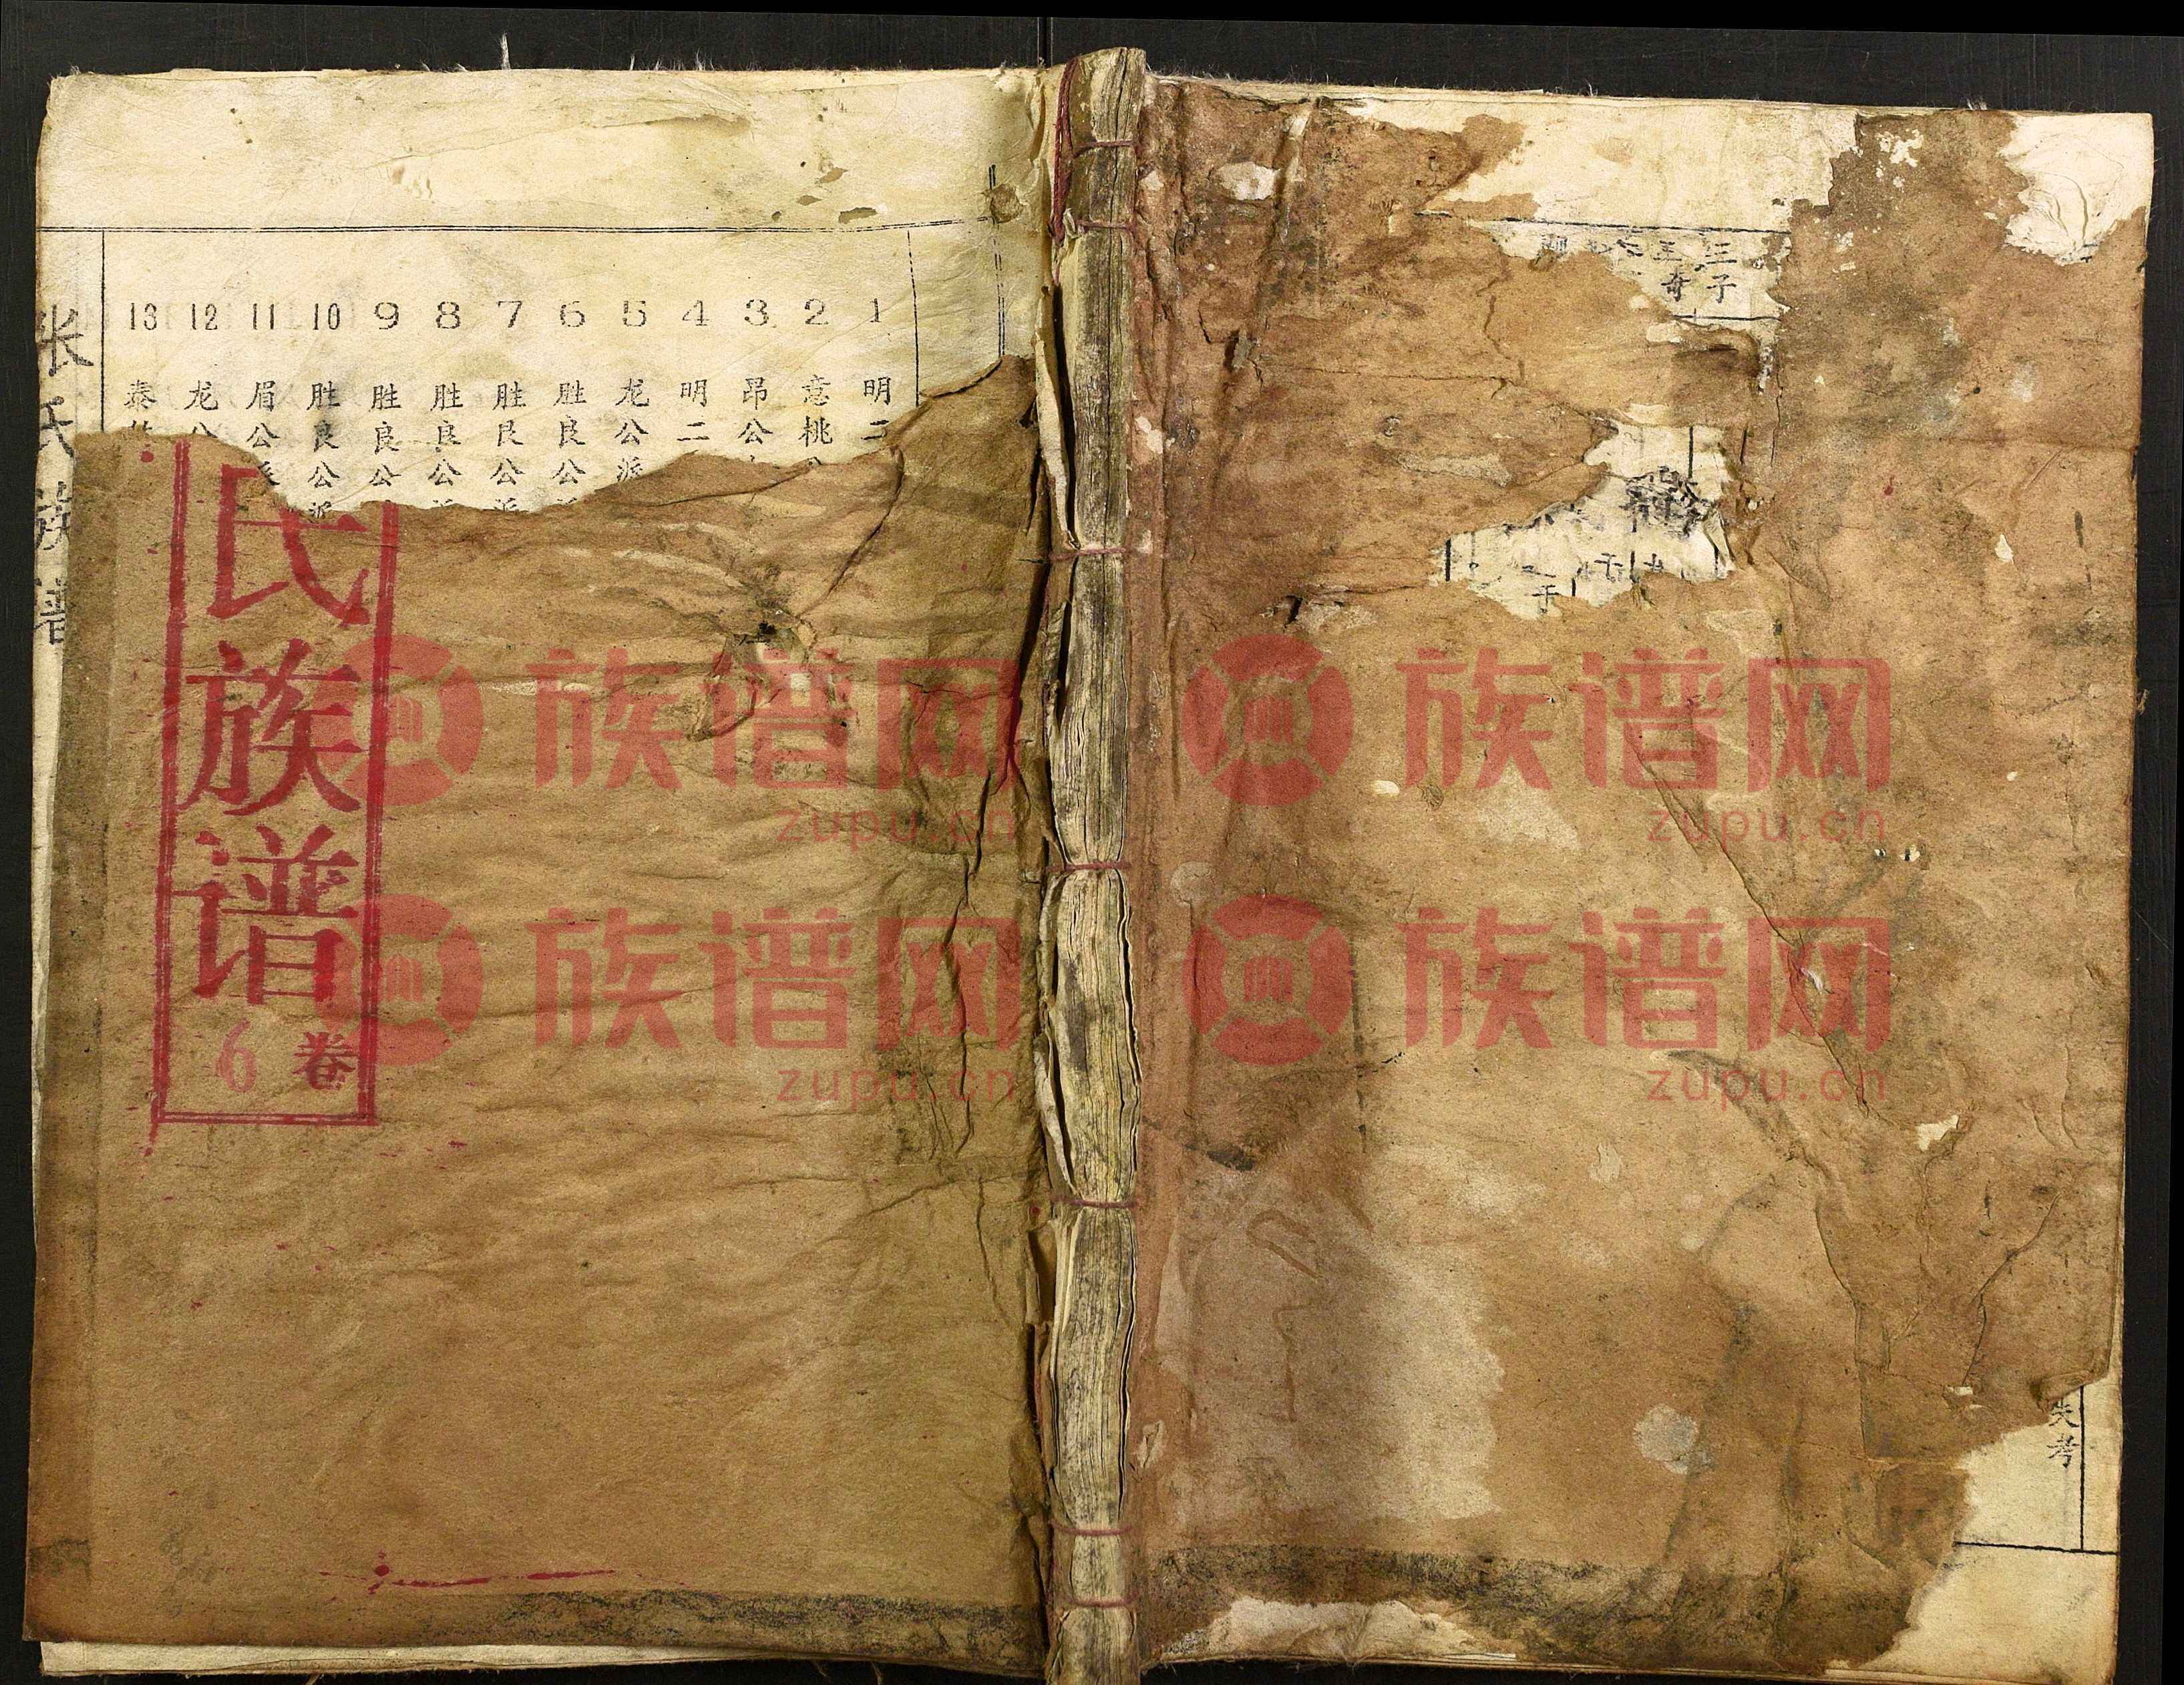 1 明二
2 意桃
3 昂公
4 明二
5 龙公派
6 胜良公
7 胜良公派
8 胜良公
9 胜良公
10 胜良公派
11 眉公派
12 龙公
13 泰
张氏族谱
氏族谱
卷
6
三子
三奇
失考
族谱网
zupu.cn
族谱网
zupu.cn
族谱网
zupu.cn
族谱网
zupu.cn